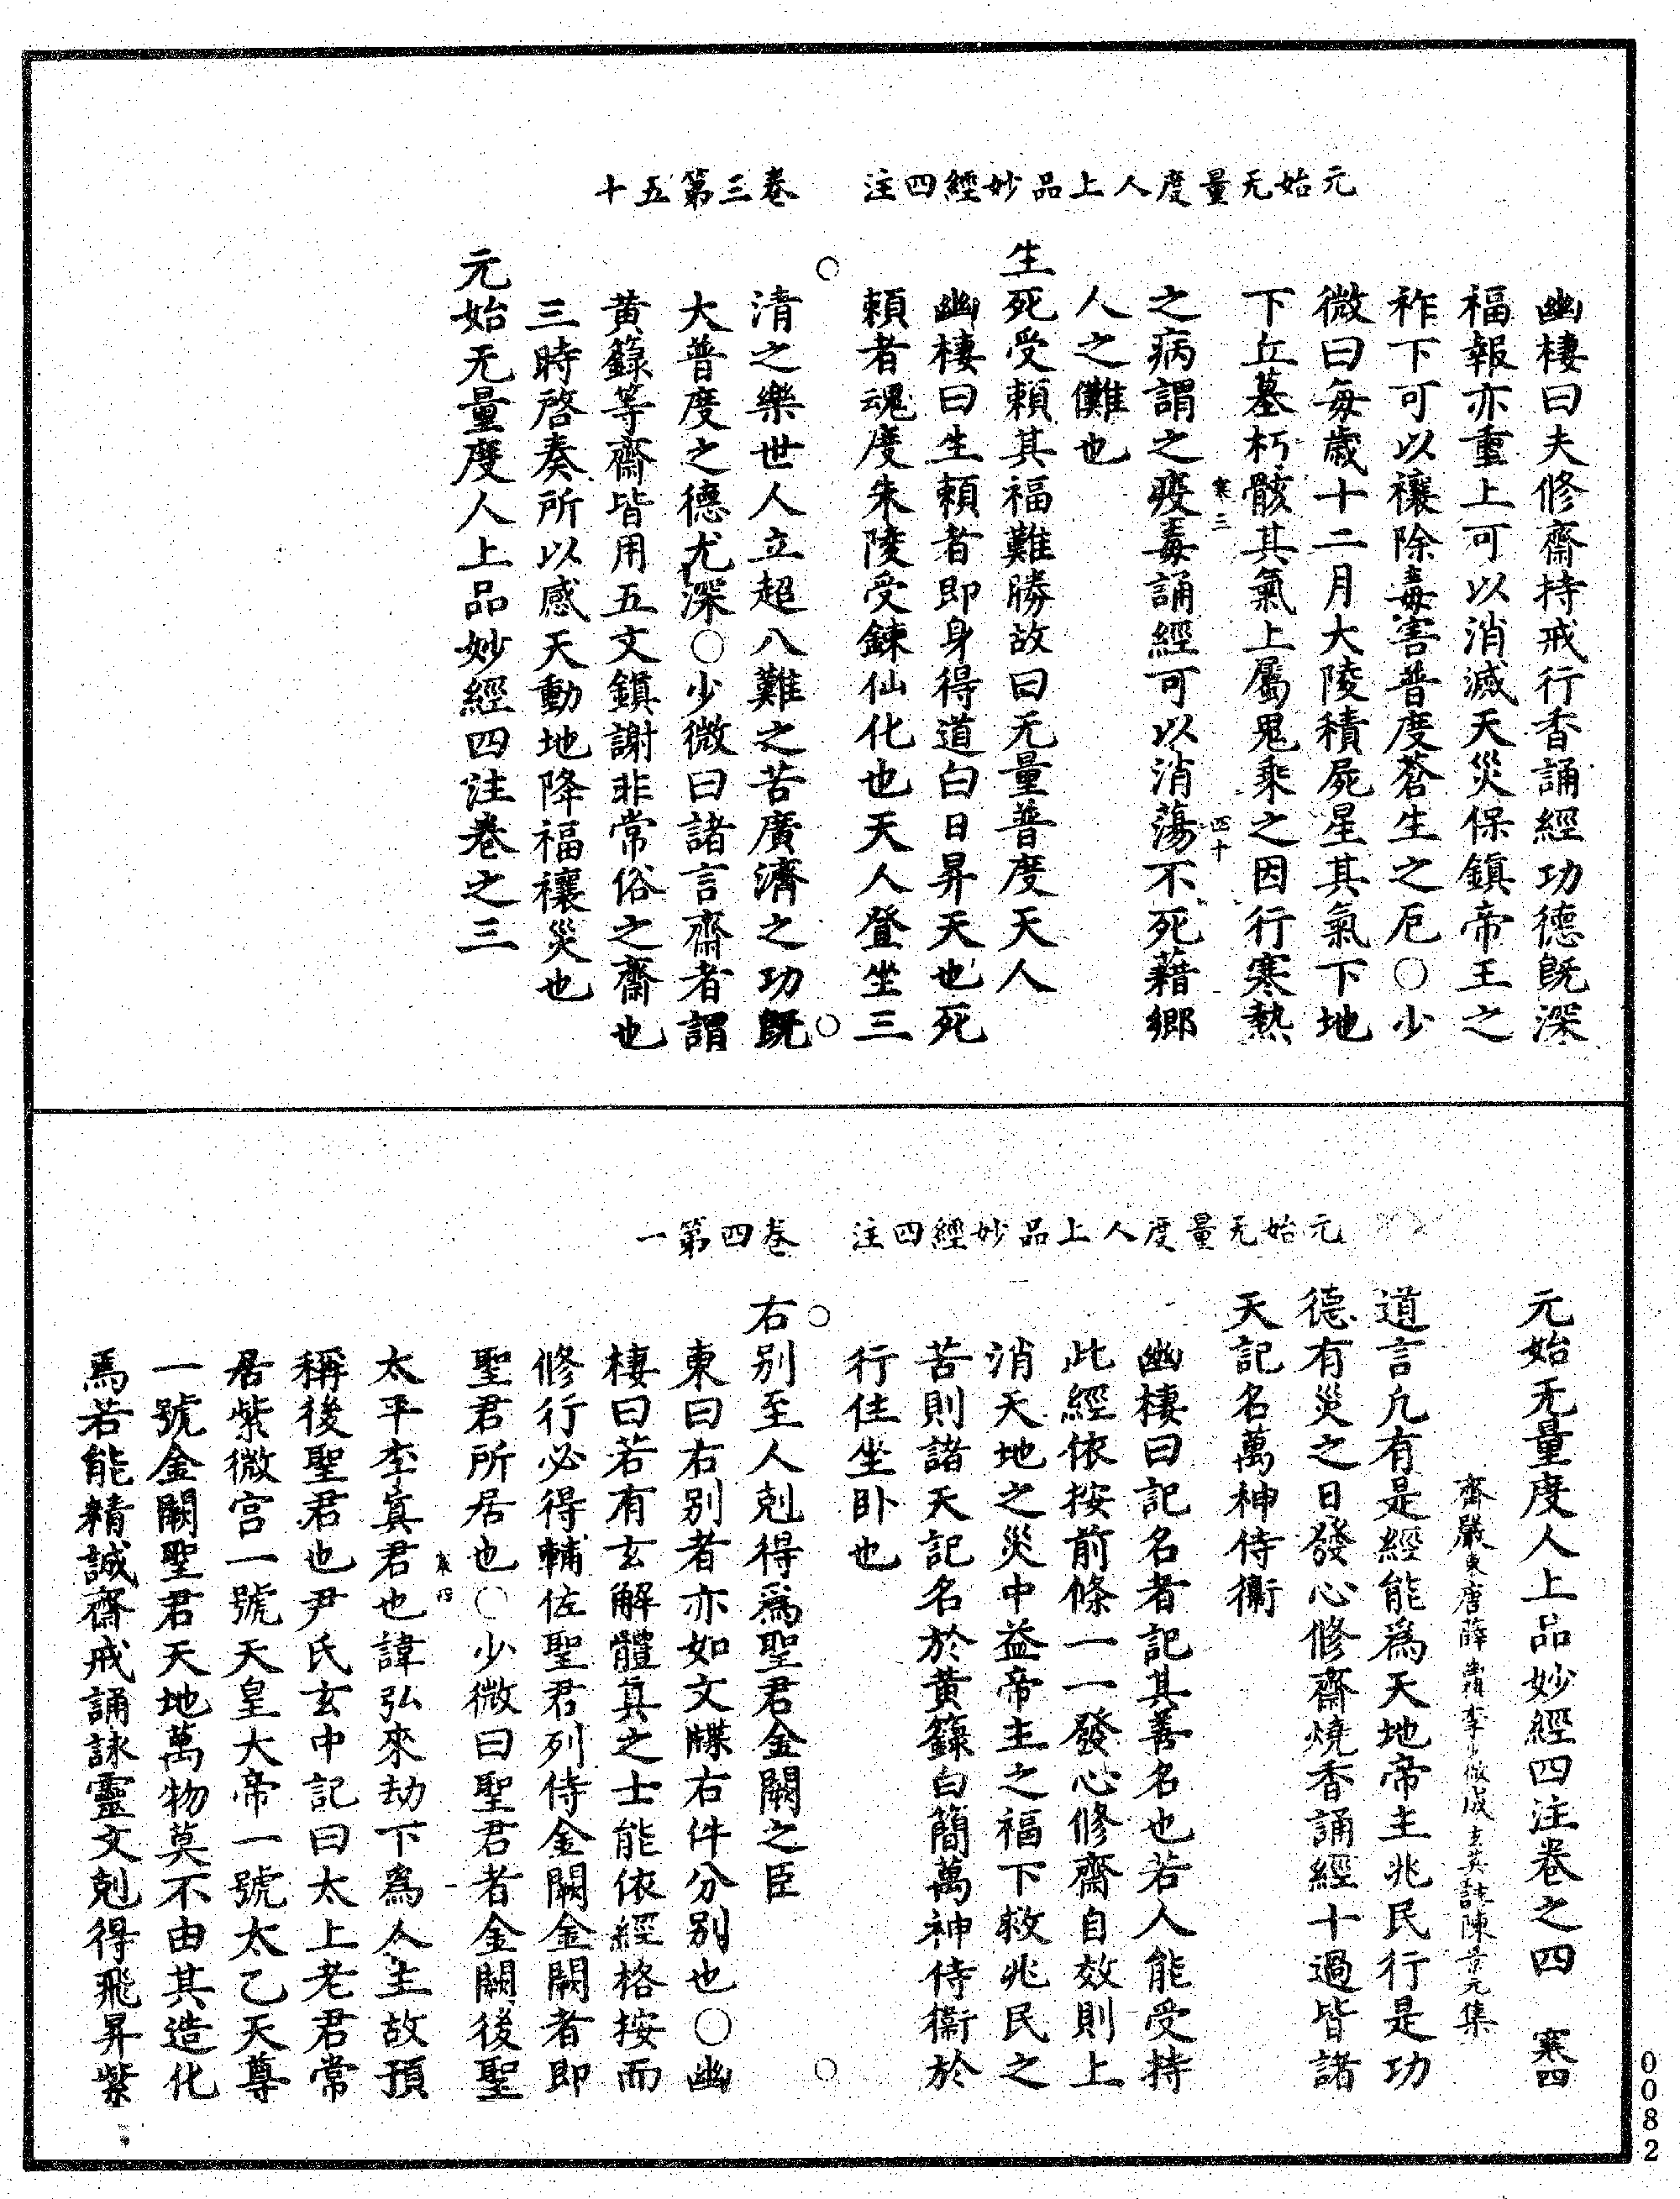 元始无量度人上品妙經四注　卷三第五十
幽棲曰夫修齋持戒行香誦經功德既深
福報亦重上可以消滅天災保鎮帝王之
祚下可以禳除毒害普度蒼生之厄○少
微曰每歲十二月大陵積屍星其氣下地
下丘墓朽骸其氣上屬鬼乘之因行寒熱
寒三　四十一
之病謂之疫毒誦經可以消蕩不死藉鄉
人之儺也
生死受賴其福難勝故曰无量普度天人
幽棲曰生賴者即身得道白日昇天也死
賴者魂度朱陵受鍊仙化也天人登坐三
清之樂世人立超八難之苦廣濟之功既
大普度之德尤深○少微曰諸言齋者謂
黃籙等齋皆用五文鎮謝非常俗之齋也
三時啓奏所以感天動地降福禳災也
元始无量度人上品妙經四注卷之三
元始无量度人上品妙經四注　卷四第一
元始无量度人上品妙經四注卷之四　寒四
齊嚴東唐薛幽棲李少微成玄英註陳景元集
道言凢有是經能爲天地帝主兆民行是功
德有災之日發心修齋燒香誦經十過皆諸
天記名萬神侍衛
幽棲曰記名者記其善名也若人能受持
此經依按前條一一發心修齋自效則上
消天地之災中益帝主之福下救兆民之
苦則諸天記名於黃籙白簡萬神侍衛於
行住坐卧也
右別至人剋得爲聖君金闕之臣
東曰右別者亦如文牒右件分別也○幽
棲曰若有玄解體真之士能依經格按而
修行必得輔佐聖君列侍金闕金闕者即
聖君所居也○少微曰聖君者金闕後聖
寒四　一
太平李真君也諱弘來劫下爲人主故預
稱後聖君也尹氏玄中記曰太上老君常
居紫微宮一號天皇大帝一號太乙天尊
一號金闕聖君天地萬物莫不由其造化
焉若能精誠齋戒誦詠靈文剋得飛昇紫
0082